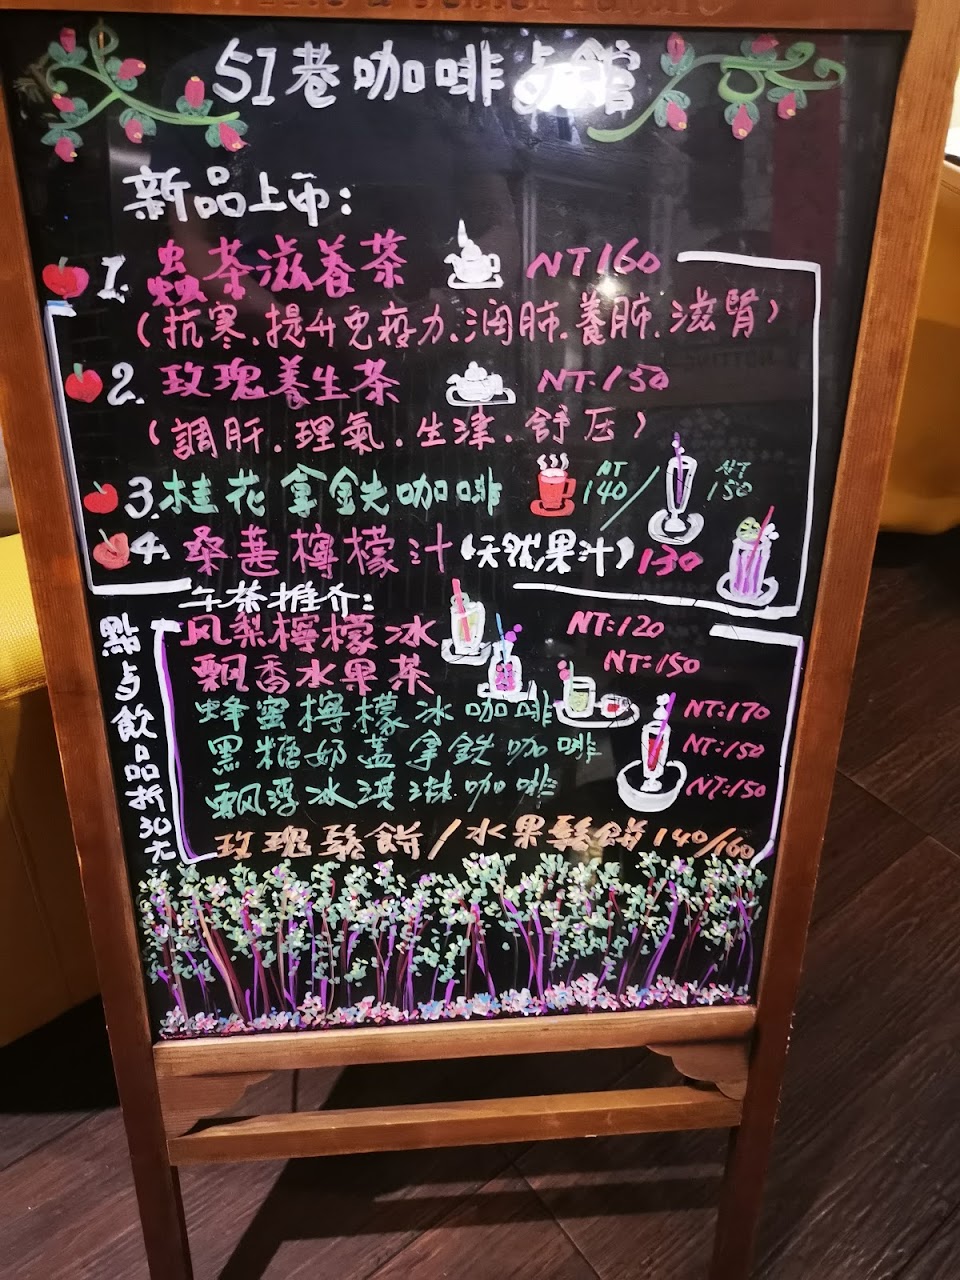 51巷咖啡点館
新品上市:
1. 蟲茶滋養茶 NT160
(抗寒.提升免疫力.潤肺.養肺.滋腎)
2. 玫瑰養生茶 NT:150
(調肝.理氣.生津.舒压)
3. 桂花拿鉄咖啡 NT140/NT150
4. 桑葚檸檬汁(天然果汁)130
午茶推介:
风梨檸檬冰 NT:120
飘香水果茶 NT:150
蜂蜜檸檬冰咖啡 NT:170
黑糖奶蓋拿鉄咖啡 NT:150
飘浮冰淇淋咖啡 NT:150
玫瑰鬆餅/水果鬆餅140/160
點点飲品折30元